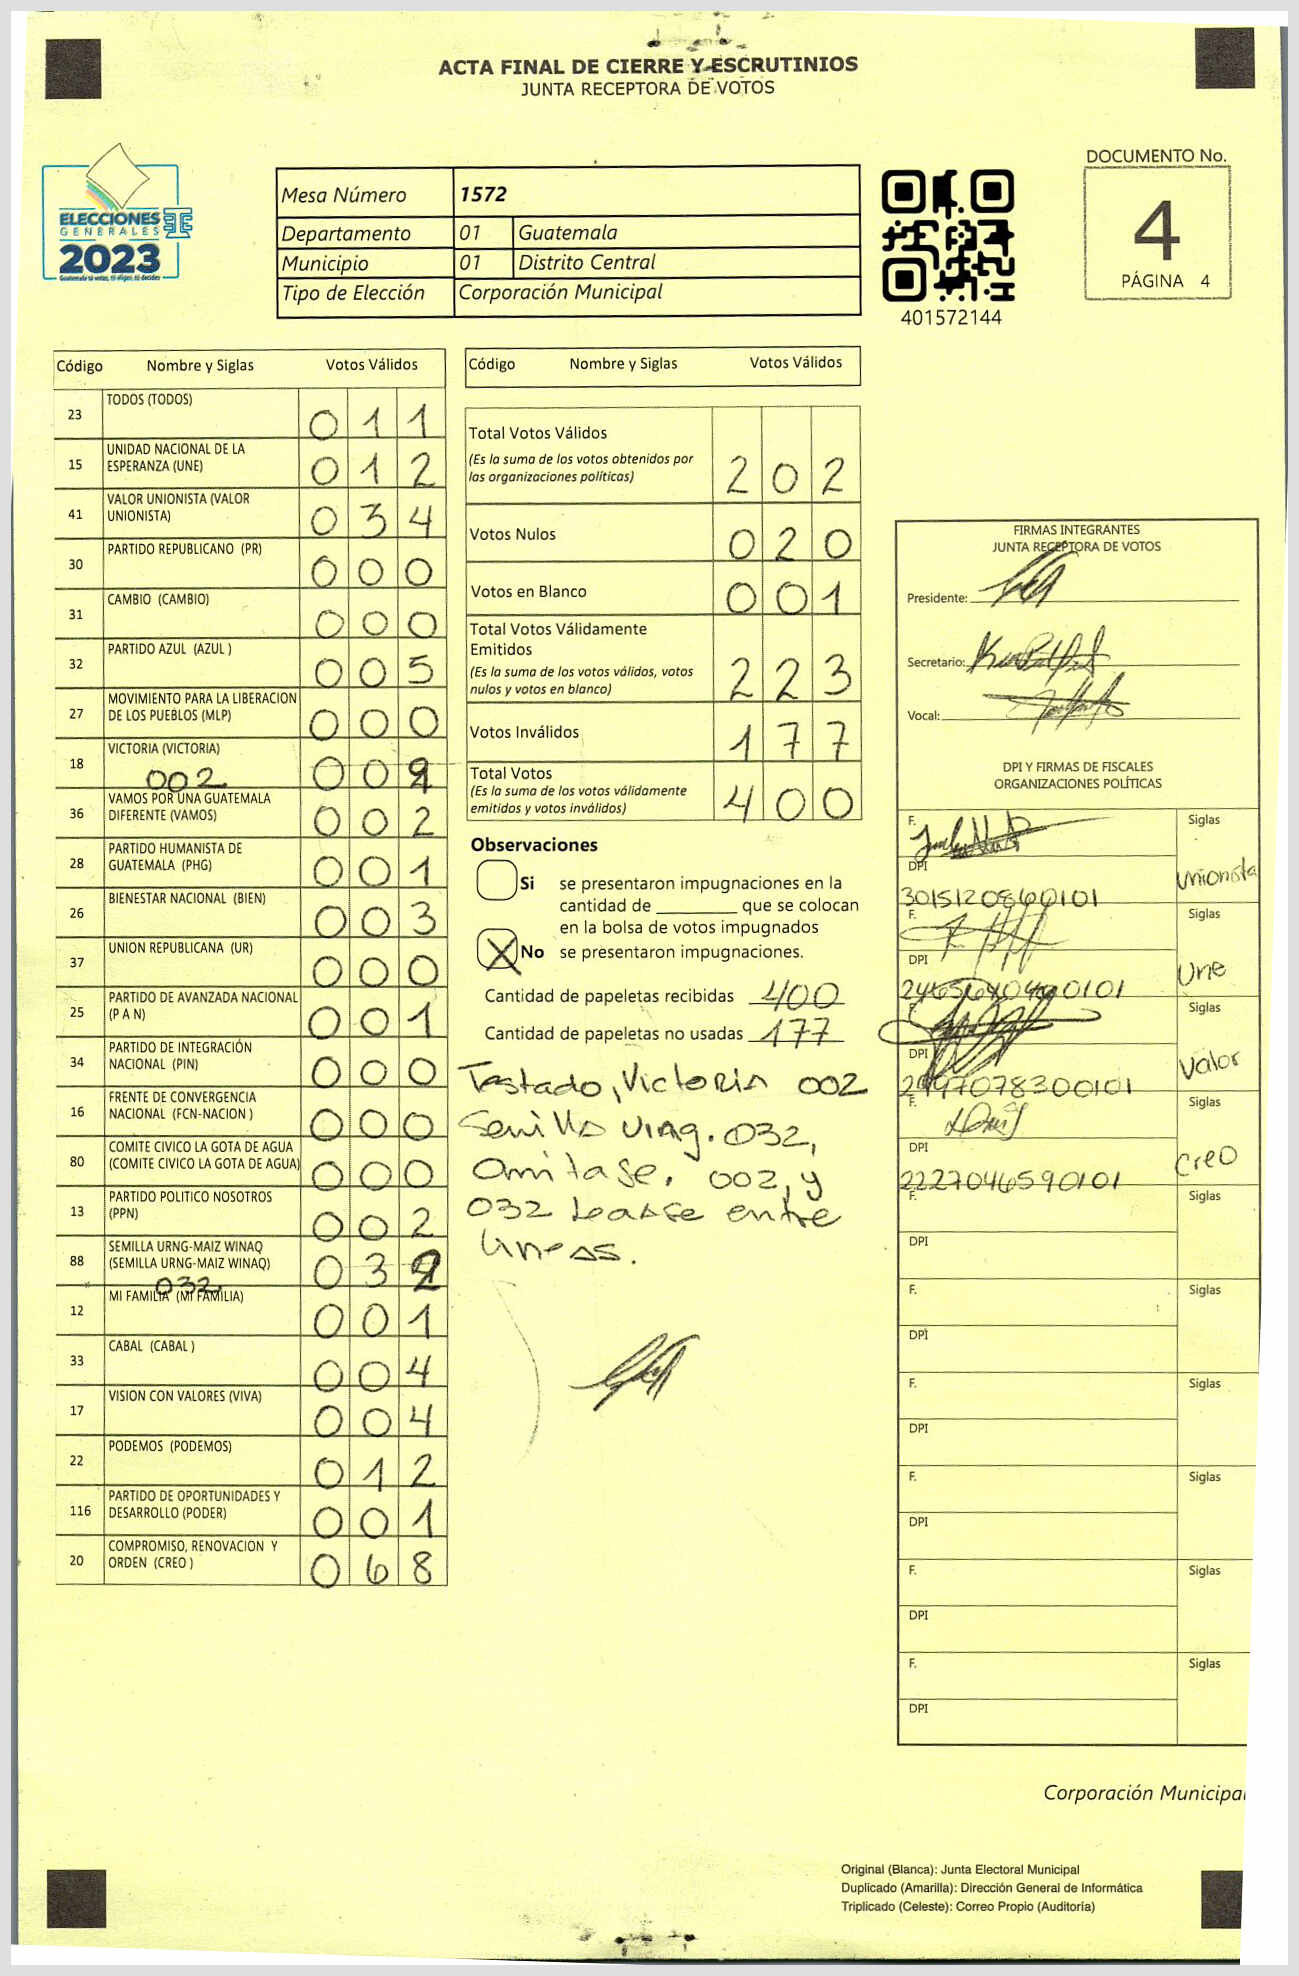 ACTA FINAL DE CIERRE Y ESCRUTINIOS
JUNTA RECEPTORA DE VOTOS
ELECCIONES
GENERALES
2023
Mesa Número 1572
Departamento 01 Guatemala
Municipio 01 Distrito Central
Tipo de Elección Corporación Municipal
401572144
DOCUMENTO No.
4
PÁGINA 4
Código Nombre y Siglas Votos Válidos
23 TODOS (TODOS) 011
15 UNIDAD NACIONAL DE LA
ESPERANZA (UNE) 012
41 VALOR UNIONISTA (VALOR
UNIONISTA) 034
30 PARTIDO REPUBLICANO (PR) 000
31 CAMBIO (CAMBIO) 000
32 PARTIDO AZUL (AZUL ) 005
27 MOVIMIENTO PARA LA LIBERACION
DE LOS PUEBLOS (MLP) 000
18 VICTORIA (VICTORIA)
002 002
36 VAMOS POR UNA GUATEMALA
DIFERENTE (VAMOS) 002
28 PARTIDO HUMANISTA DE
GUATEMALA (PHG) 001
26 BIENESTAR NACIONAL (BIEN) 003
37 UNION REPUBLICANA (UR) 000
25 PARTIDO DE AVANZADA NACIONAL
(P A N) 001
34 PARTIDO DE INTEGRACIÓN
NACIONAL (PIN) 000
16 FRENTE DE CONVERGENCIA
NACIONAL (FCN-NACION ) 000
80 COMITE CIVICO LA GOTA DE AGUA
(COMITE CIVICO LA GOTA DE AGUA) 000
13 PARTIDO POLITICO NOSOTROS
(PPN) 002
88 SEMILLA URNG-MAIZ WINAQ
(SEMILLA URNG-MAIZ WINAQ) 032
032
12 MI FAMILIA (MI FAMILIA) 001
33 CABAL (CABAL ) 004
17 VISION CON VALORES (VIVA) 004
22 PODEMOS (PODEMOS) 012
116 PARTIDO DE OPORTUNIDADES Y
DESARROLLO (PODER) 001
20 COMPROMISO, RENOVACION Y
ORDEN (CREO ) 068
Código Nombre y Siglas Votos Válidos
Total Votos Válidos
(Es la suma de los votos obtenidos por
las organizaciones políticas) 202
Votos Nulos 020
Votos en Blanco 001
Total Votos Válidamente
Emitidos
(Es la suma de los votos válidos, votos
nulos y votos en blanco) 223
Votos Inválidos 177
Total Votos
(Es la suma de los votos válidamente
emitidos y votos inválidos) 400
Observaciones
Si se presentaron impugnaciones en la
cantidad de ________ que se colocan
en la bolsa de votos impugnados
X No se presentaron impugnaciones.
Cantidad de papeletas recibidas 400
Cantidad de papeletas no usadas 177
Testado, Victoria 002
Semilla Urng. 032,
Omitase. 002, y
032 Lease entre
lineas.
FIRMAS INTEGRANTES
JUNTA RECEPTORA DE VOTOS
Presidente:
Secretario:
Vocal:
DPI Y FIRMAS DE FISCALES
ORGANIZACIONES POLÍTICAS
F. Siglas
DPI Unionista
3015120860101
F. Siglas
DPI Une
F. Siglas
DPI Valor
F. Siglas
DPI Creo
2227046590101
F. Siglas
DPI
F. Siglas
DPI
F. Siglas
DPI
F. Siglas
DPI
F. Siglas
DPI
F. Siglas
DPI
Corporación Municipal
Original (Blanca): Junta Electoral Municipal
Duplicado (Amarilla): Dirección General de Informática
Triplicado (Celeste): Correo Propio (Auditoría)